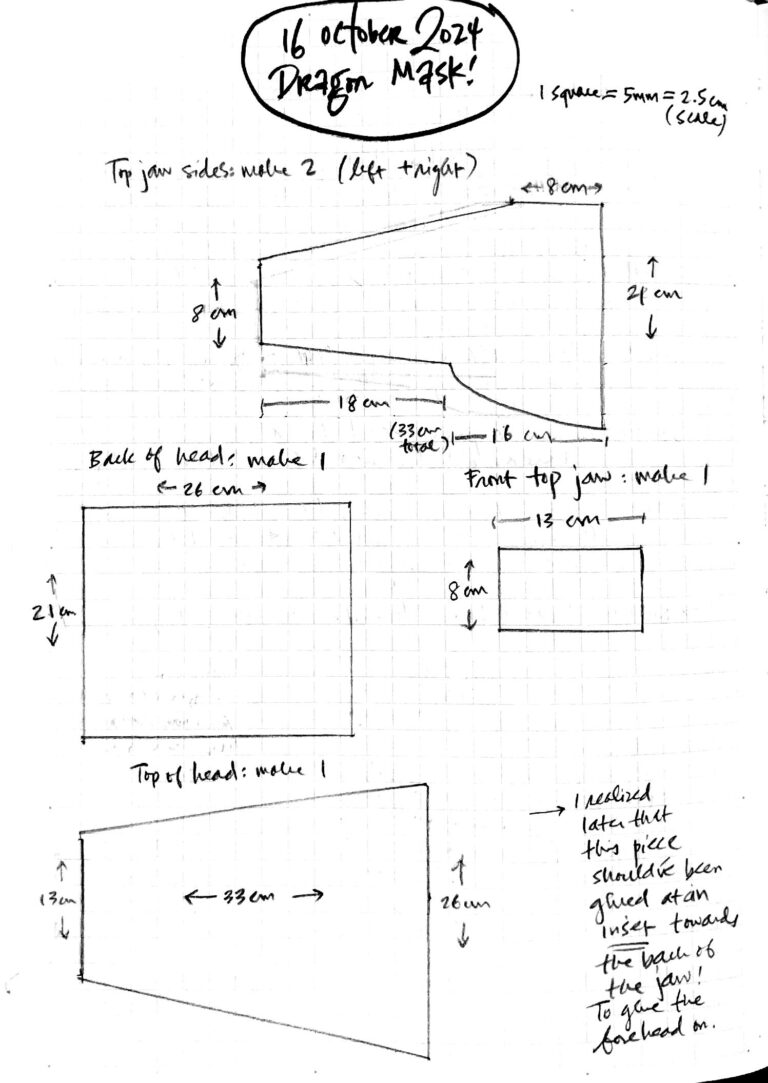 16 october 2024
Dragon Mask!
1 square = 5mm = 2.5cm
(scale)
Top jaw sides: make 2 (left + right)
8 cm
8 cm
21 cm
18 cm
(33cm
total)
16 cm
Back of head: make 1
26 cm
21cm
Front top jaw: make 1
13 cm
8cm
Top of head: make 1
13cm
33cm
26cm
→ I realized
later that
this piece
should've been
glued at an
inset towards
the back of
the jaw!
To glue the
forehead on.